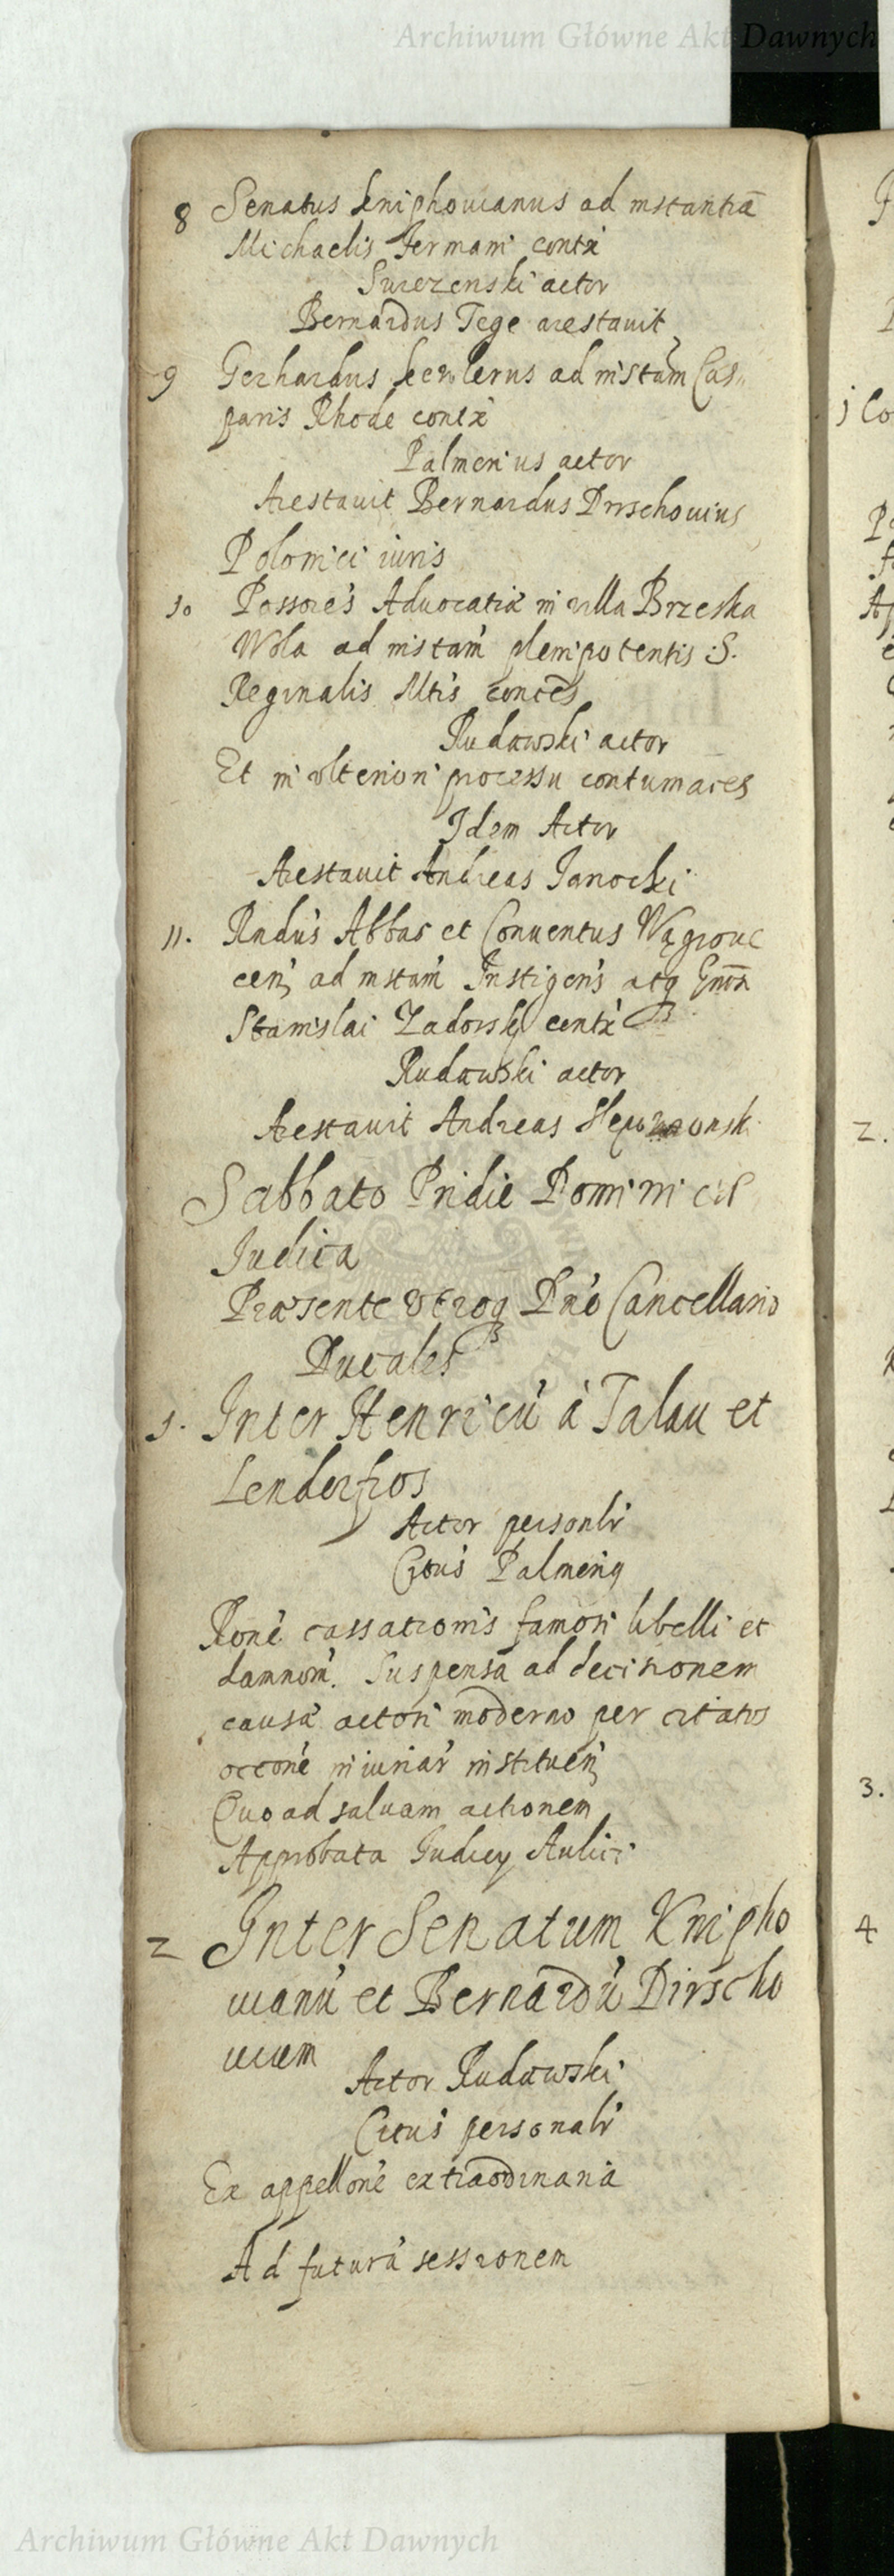 Archiwum Główne Akt Dawnych
8 Senatus kniphouianus ad instantiā
Michaelis Fermani contx
Swiezenski actor
Bernardus Tege arestauit
9 Gerhardus kewlerus ad instam Cas„
paris Rhode contx
Palmerius actor
Arestauit Bernardus Dirschouius
Polonici iuris
10 Possores Aduocatiæ in villa Brzeska
Wola ad instam plenipotentis S.
Reginalis Mtis contes
Rudawski actor
Et in vlteriori processu contumaces
Idem Actor
Arestauit Andreas Janocki
11. Rndus Abbas et Conuentus Wągrouc
cen ad instam Instigens atq Gnosi
Stanislai Zadorsky contx
Rudawski actor
Arestauit Andreas
Sabbato Pridie Dominicæ
Judica
Præsente vtroq Dno Cancellario
Ducales
1. Inter Henricu à Talau et
Lendorfios
Actor personlr
Citus Palmeriq
Rone cassationis famosi libelli et
damnom. Suspensa ad decisionem
causa actori moderno per citatos
occone iniuriar instituen
Quo ad saluam actionem
Approbata Judicy Aulici
2 Inter Senatum Knipho
uianu et Bernardu Dirscho
uium
Actor Rudawski
Citus personalr
Ex appellone extraordinaria
Ad futura sessionem
j Co
2.
3.
4
Archiwum Główne Akt Dawnych